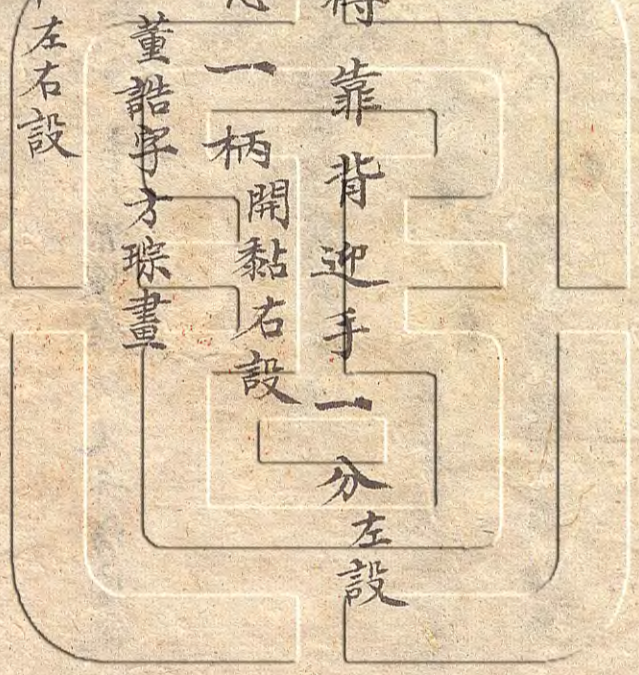 靠背迎手一分左設
一柄開黏右設
董誥字方琮畫
左右設